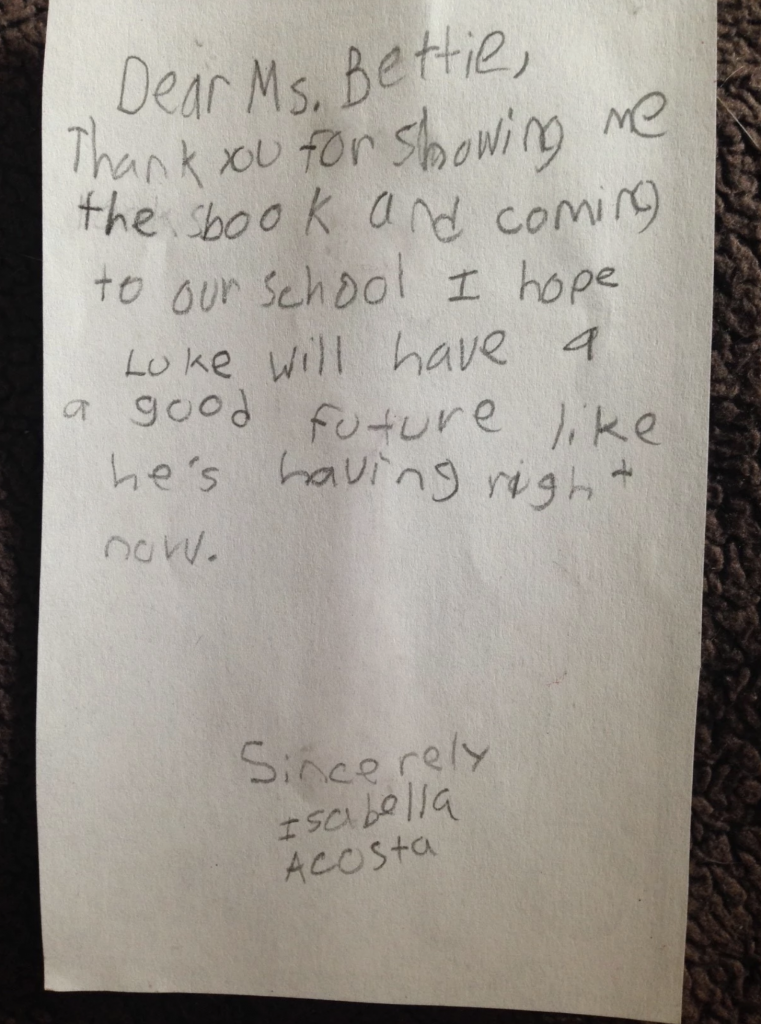 Dear Ms. Bettie,
Thank you for showing me
the sbook and coming
to our school I hope
Luke will have a
a good future like
he's having right
now.
Sincerely
Isabella
Acosta